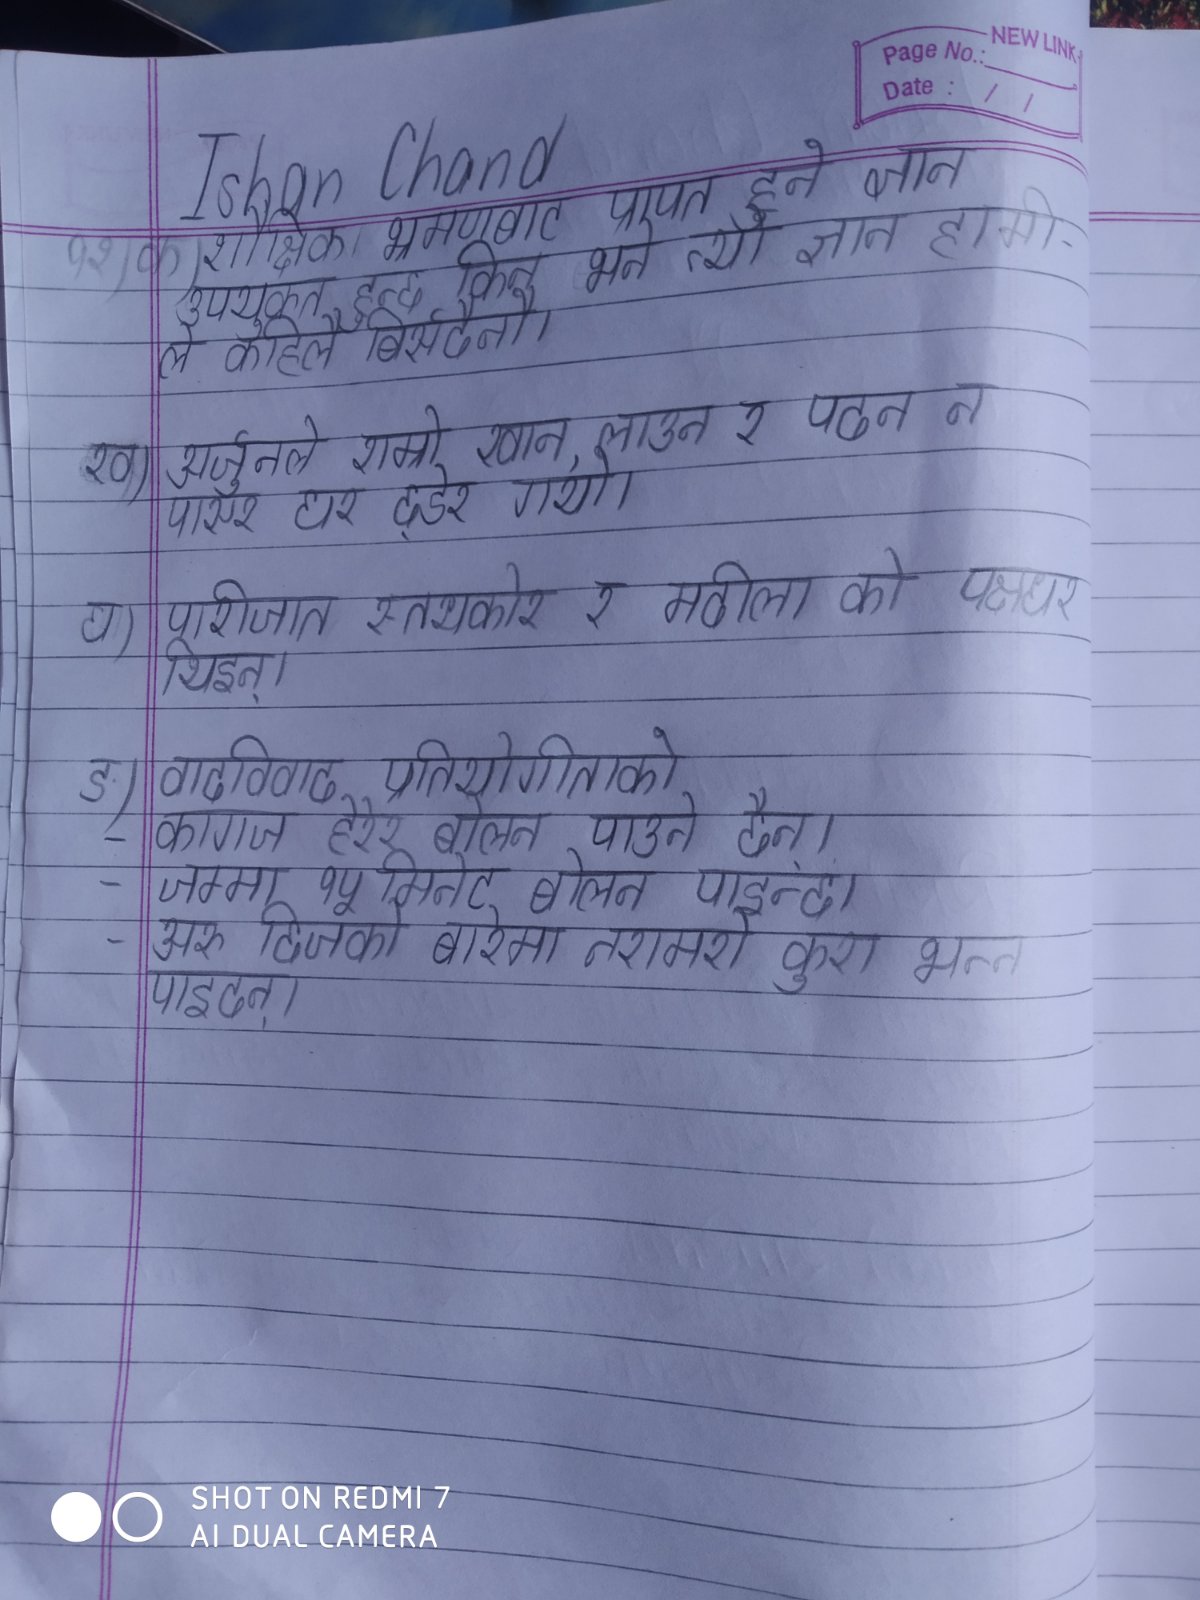 NEW LINK
Page No.:
Date : / /
Ishan Chand
१२) क) शैक्षिक भ्रमणबाट प्रापत हुने ज्ञान
उपयुक्त हुन्छ किनु भने त्यो ज्ञान हामी-
ले कहिलै बिर्सदैनौ।
ख) अर्जुनले राम्रो खान, लाउन र पढन न
पाएर घर छ्डेर गयो।
घ) पारीजात स्तयकोर र महीला को पक्षधर
थिइन्।
ङ) वादविवाद प्रतियोगीताको
- कागज हेरेर बोलन पाउने छैन्।
- जम्मा १५ मिनेट बोलन पाइन्छ।
- अरु टिजको बारेमा नरामरो कुरा भन्न
पाइदन्।
SHOT ON REDMI 7
AI DUAL CAMERA